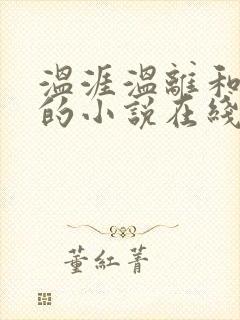 温涯温離和
的小説在綫
董紅菁